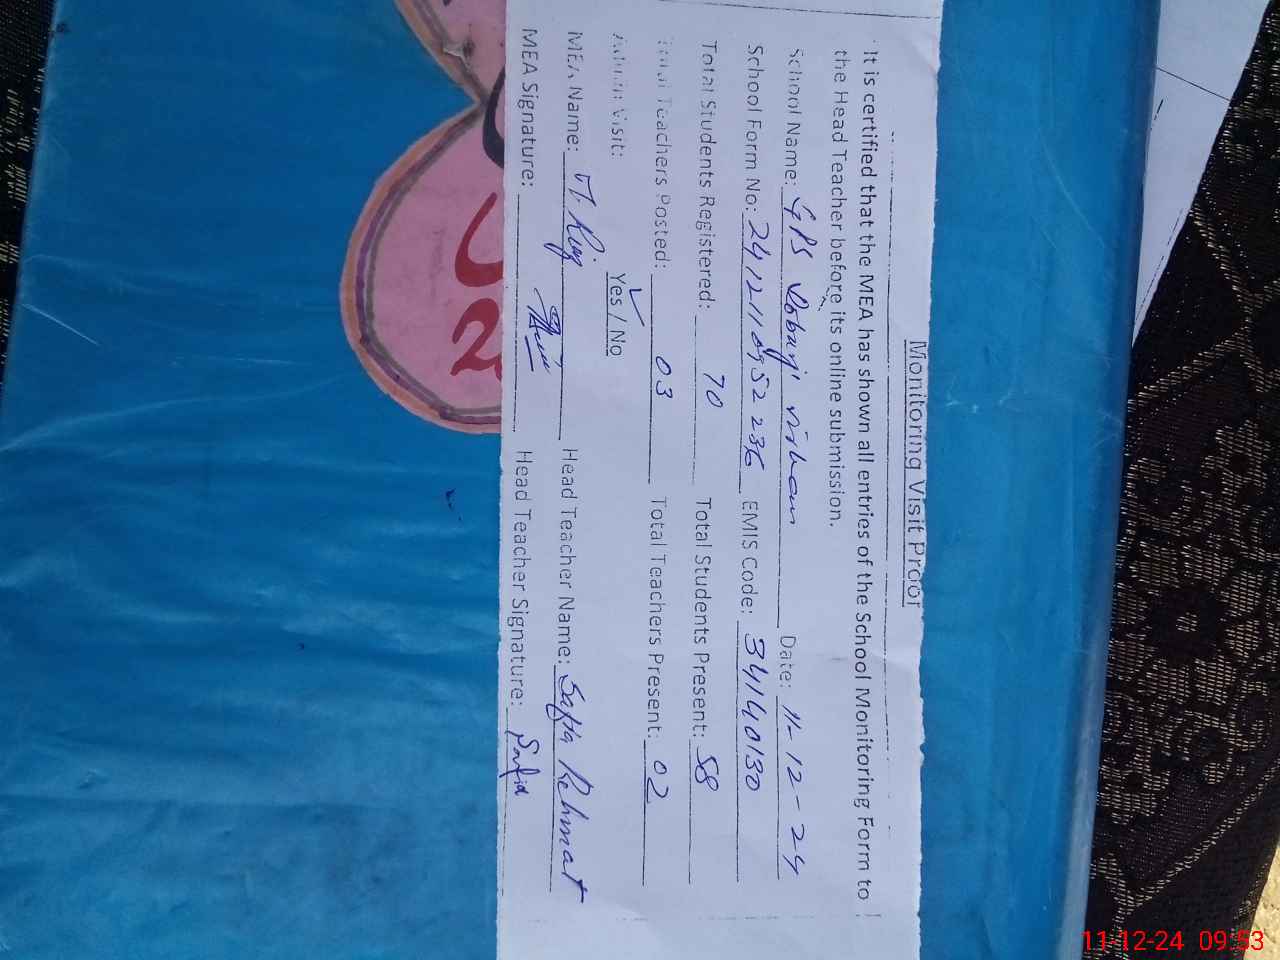 Monitoring Visit Proof
It is certified that the MEA has shown all entries of the School Monitoring Form to
the Head Teacher before its online submission.
School Name: GPS Date: 11-12-24
School Form No: EMIS Code: 34140130
Total Students Registered: 70 Total Students Present: 58
Total Teachers Posted: 03 Total Teachers Present: 02
Admin Visit: Yes / No
MEA Name: Head Teacher Name: Safia Rehmat
MEA Signature: Head Teacher Signature: Safia
11-12-24 09:53